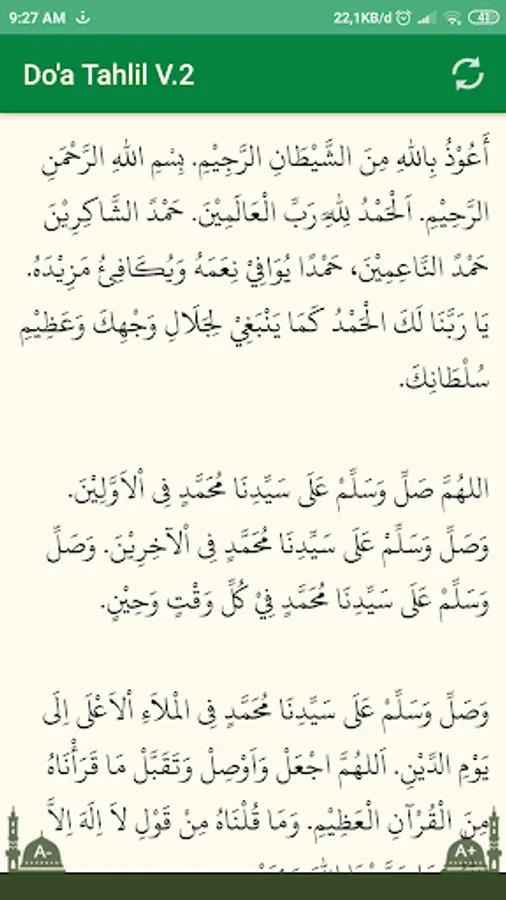 9:27 AM
22,1KB/d
41
Do'a Tahlil V.2
أَعُوْذُ بِاللهِ مِنَ الشَّيْطَانِ الرَّجِيْمِ. بِسْمِ اللهِ الرَّحْمَنِ
الرَّحِيْمِ. اَلْحَمْدُ لِلّٰهِ رَبِّ الْعَالَمِيْنَ. حَمْدً الشَّاكِرِيْنَ
حَمْدً النَّاعِمِيْنَ، حَمْدًا يُوَافِيْ نِعَمَهُ وَيُكَافِئُ مَزِيْدَهُ.
يَا رَبَّنَا لَكَ الْحَمْدُ كَمَا يَنْبَغِيْ لِجَلَالِ وَجْهِكَ وَعَظِيْمِ
سُلْطَانِكَ.
اللهُمَّ صَلِّ وَسَلِّمْ عَلَى سَيِّدِنَا مُحَمَّدٍ فِى اْلاَوَّلِيْنَ.
وَصَلِّ وَسَلِّمْ عَلَى سَيِّدِنَا مُحَمَّدٍ فِى اْلآخِرِيْنَ. وَصَلِّ
وَسَلِّمْ عَلَى سَيِّدِنَا مُحَمَّدٍ فِيْ كُلِّ وَقْتٍ وَحِيْنٍ.
وَصَلِّ وَسَلِّمْ عَلَى سَيِّدِنَا مُحَمَّدٍ فِى الْمَلَاءِ اْلاَعْلَى اِلَى
يَوْمِ الدِّيْنِ. اَللهُمَّ اجْعَلْ وَاَوْصِلْ وَتَقَبَّلْ مَا قَرَأْنَاهُ
مِنَ الْقُرْآنِ الْعَظِيْمِ. وَمَا قُلْنَاهُ مِنْ قَوْلِ لاَ اِلَهَ اِلاَّ
A-
A+